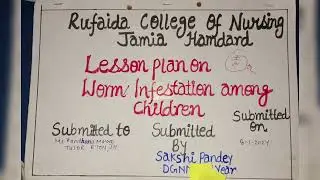 Rufaida College Of Nursing
Jamia Hamdard
Lesson plan on
Worm Infestation among
Children
Submitted to
Submitted
By
Sakshi Pandey
Year
Submitted
on